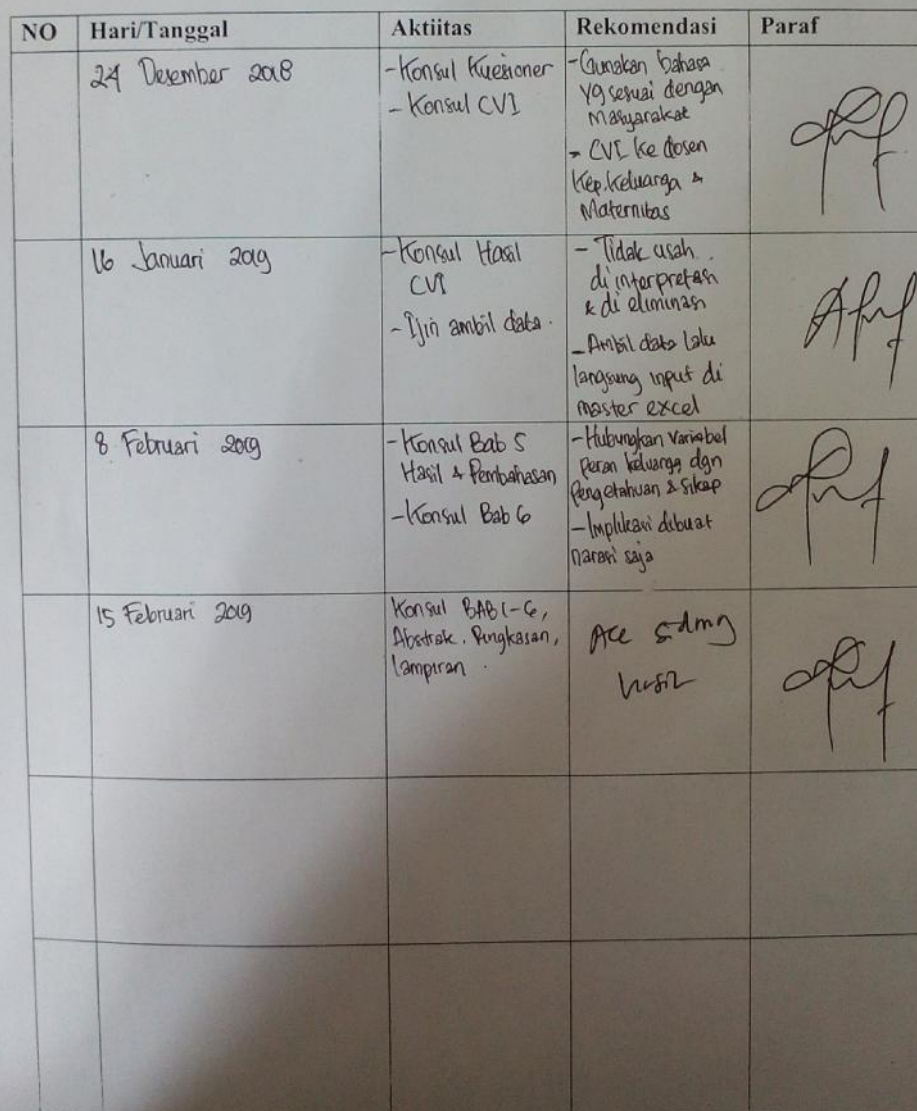 NO Hari/Tanggal Aktiitas Rekomendasi Paraf
24 Desember 2018
- Konsul Kuesioner
- Konsul CVI
- Gunakan bahasa
yg sesuai dengan
Masyarakat
- CVI ke dosen
Kep. Keluarga &
Maternitas
16 Januari 2019
- Konsul Hasil
CVI
- Ijin ambil data.
- Tidak usah
di interpretasi
& di eliminasi
- Ambil data lalu
langsung input di
master excel
8 Februari 2019
- Konsul Bab 5
Hasil & Pembahasan
- Konsul Bab 6
- Hubungkan variabel
peran keluarga dgn
pengetahuan & sikap
- Implikasi dibuat
narasi saja
15 Februari 2019
Konsul BAB 1-6,
Abstrak. Ringkasan,
lampiran.
Acc sidang
hasil